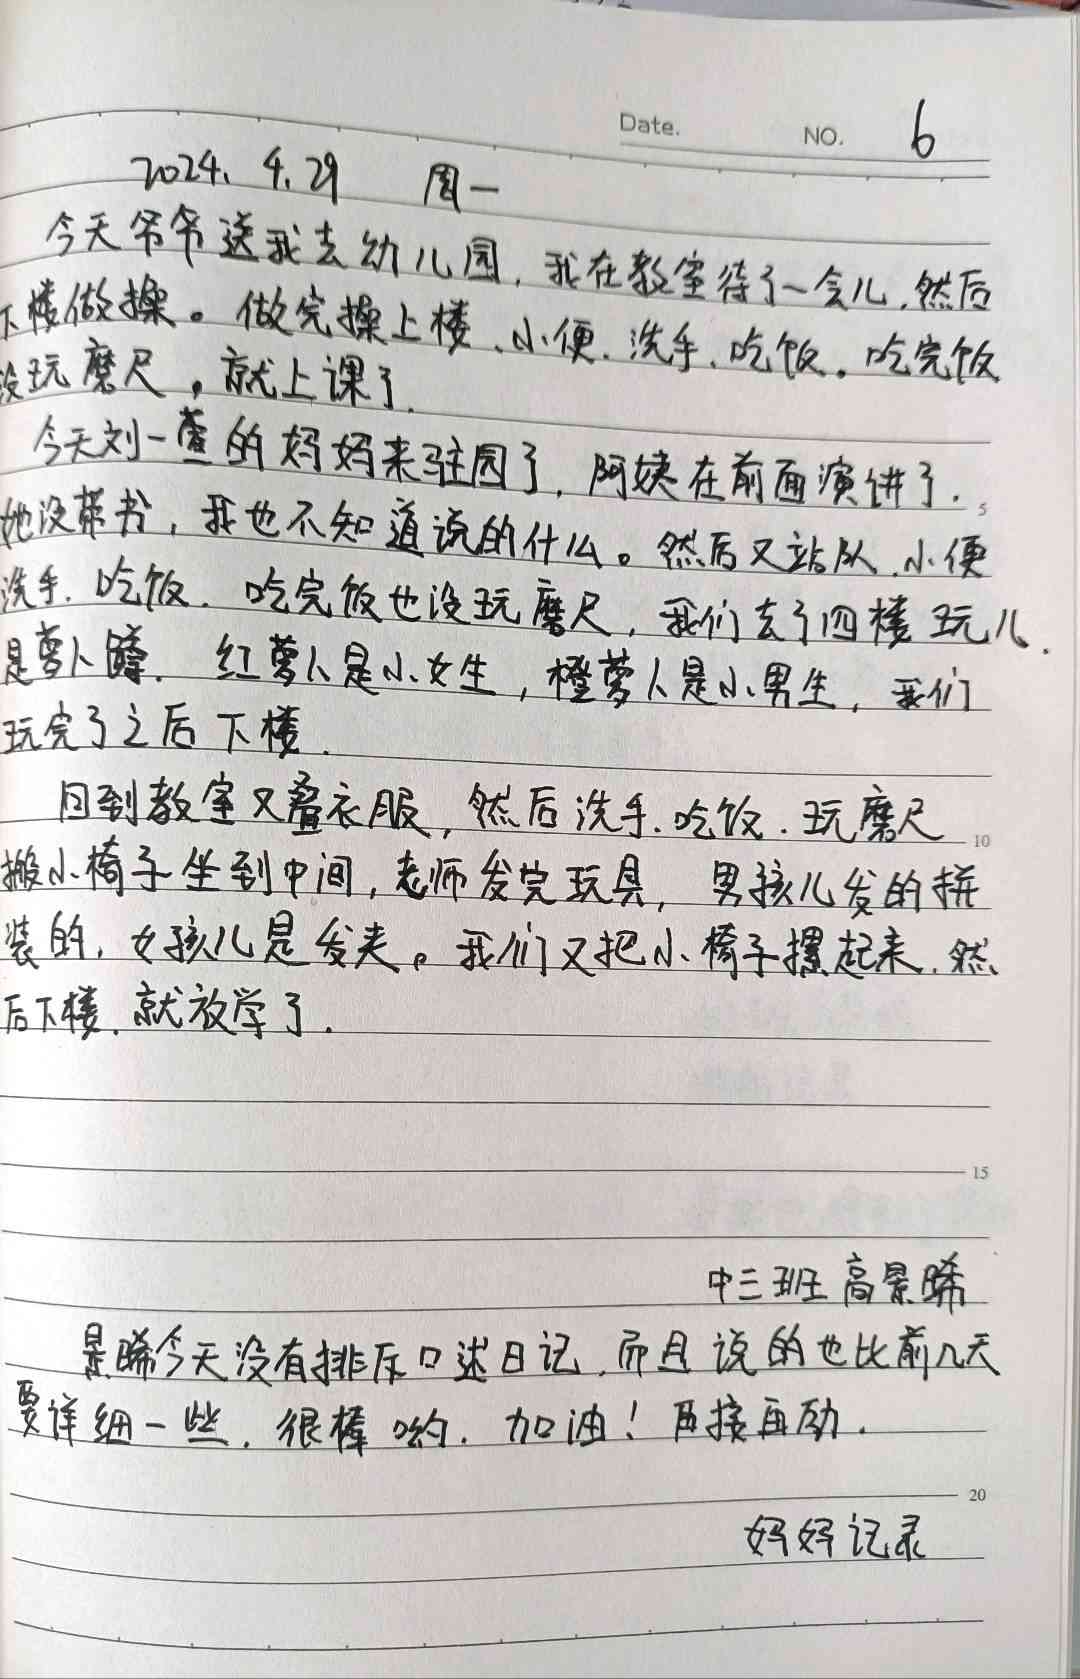 Date.
NO. 6
2024.4.29 周一
今天爷爷送我去幼儿园,我在教室待了一会儿,然后
下楼做操。做完操上楼、小便、洗手、吃饭。吃完饭
没玩磨尺,就上课了.
今天刘一萱的妈妈来驻园了,阿姨在前面演讲了.
她没带书,我也不知道说的什么。然后又站队、小便
洗手、吃饭.吃完饭也没玩磨尺,我们去了四楼玩儿.
是萝卜蹲.红萝卜是小女生,橙萝卜是小男生,我们
玩完了之后下楼.
回到教室又叠衣服,然后洗手、吃饭.玩磨尺
搬小椅子坐到中间,老师发完玩具,男孩儿发的拼
装的,女孩儿是发夹。我们又把小椅子摞起来,然
后下楼.就放学了.
5
10
15
中三班 高景晞
景晞今天没有排斥口述日记,而且说的也比前几天
要详细一些,很棒哟.加油!再接再励.
20
妈妈记录